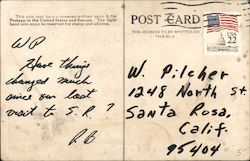 This side may have a message written upon it for
Postage in the United States and Europe. The right
hand side must be reserved for stamp and address.
POST CARD
THE ADDRESS TO BE WRITTEN ON
THIS SIDE
USA
22
WP
Have things
changed much
since our last
visit to S.R.?
RB
W. Pilcher
1248 North St.
Santa Rosa,
Calif.
95404